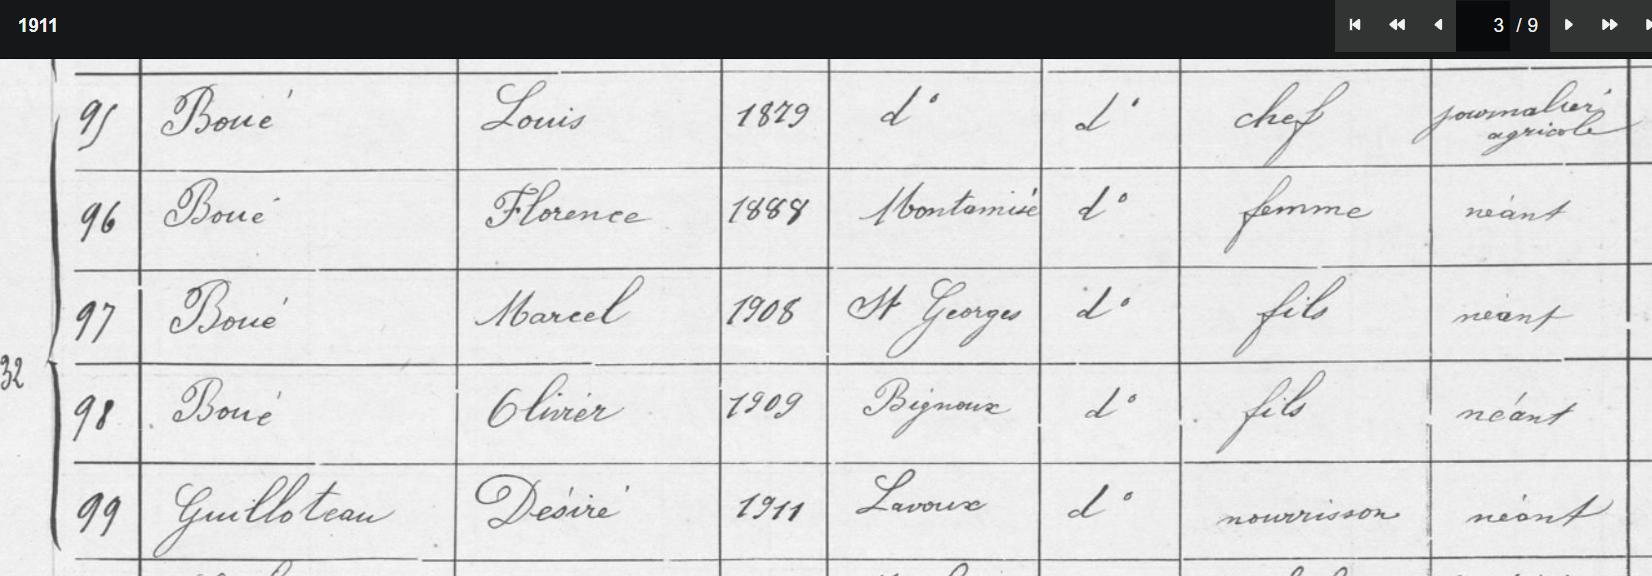 1911
3 / 9
95 Boué Louis 1879 d° d° chef journalier agricole
96 Boué Florence 1888 Montamisé d° femme néant
97 Boué Marcel 1908 St Georges d° fils néant
98 Boué Olivier 1909 Bignoux d° fils néant
32
99 Guilloteau Désiré 1911 Lavoux d° nourrisson néant